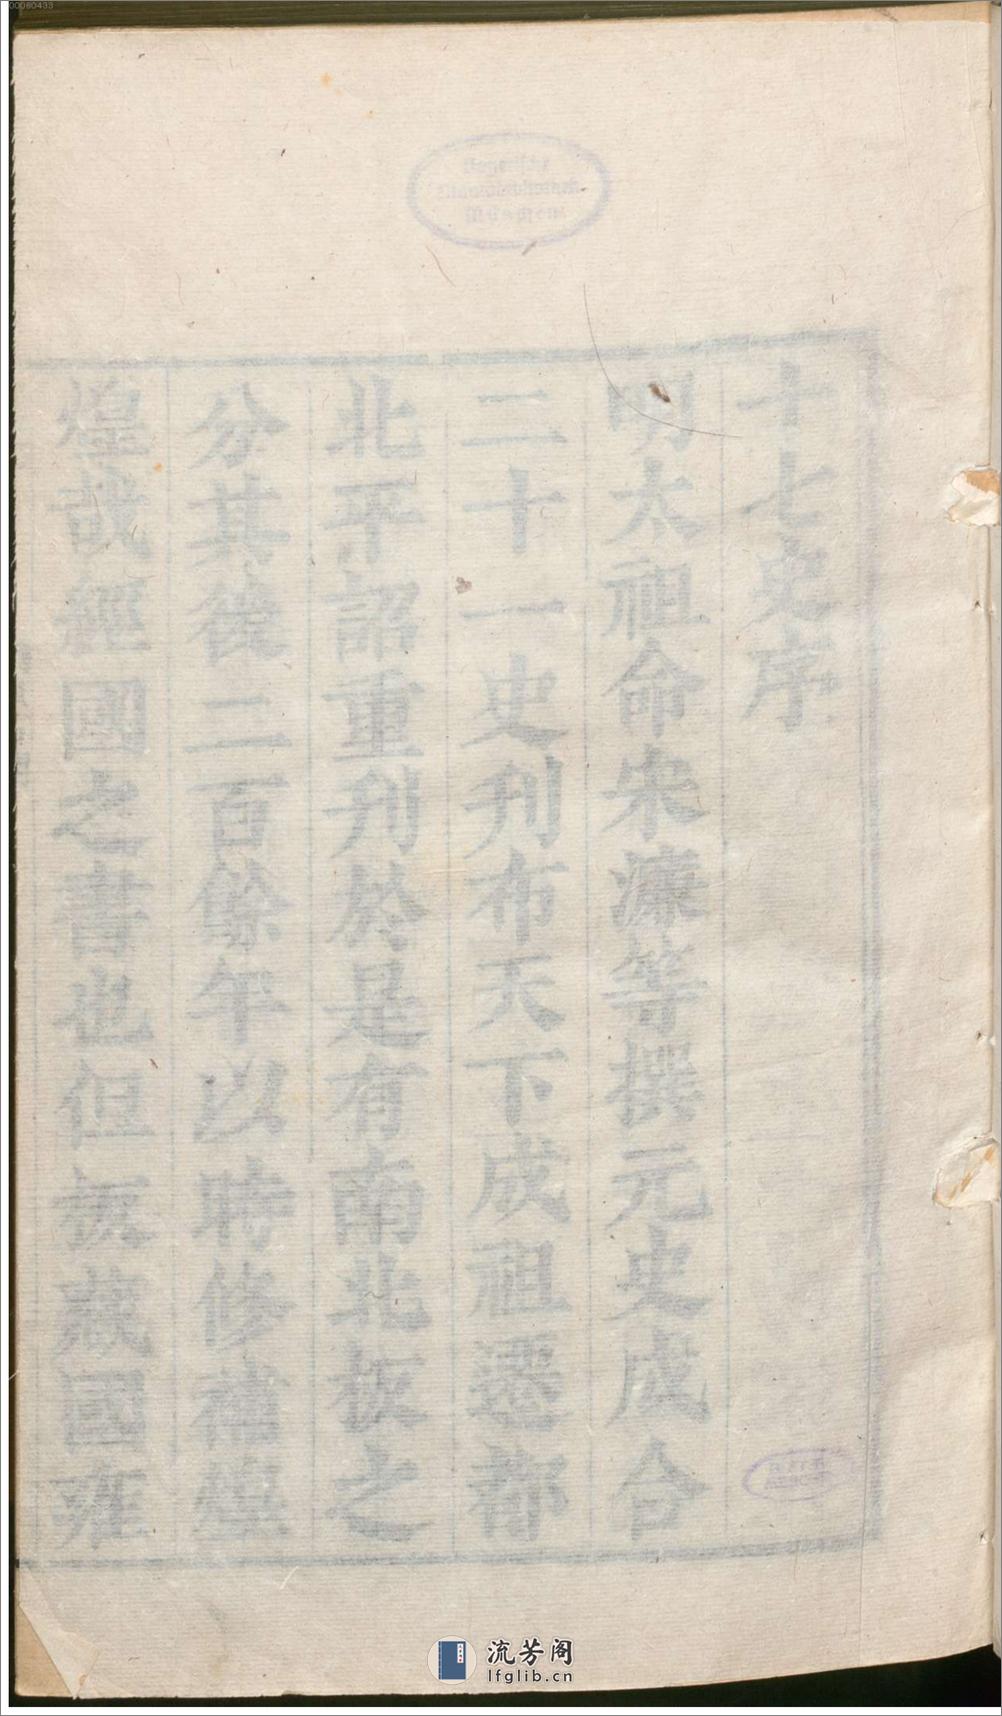 00060433
Bayerische
Staatsbibliothek
München
十七史序
明太祖命宋濂等撰元史成合
二十一史刋布天下成祖遷都
北平詔重刋於是有南北板之
分其後二百餘年以時修補煌
煌哉經國之書也但板藏國雍
流芳阁
lfglib.cn